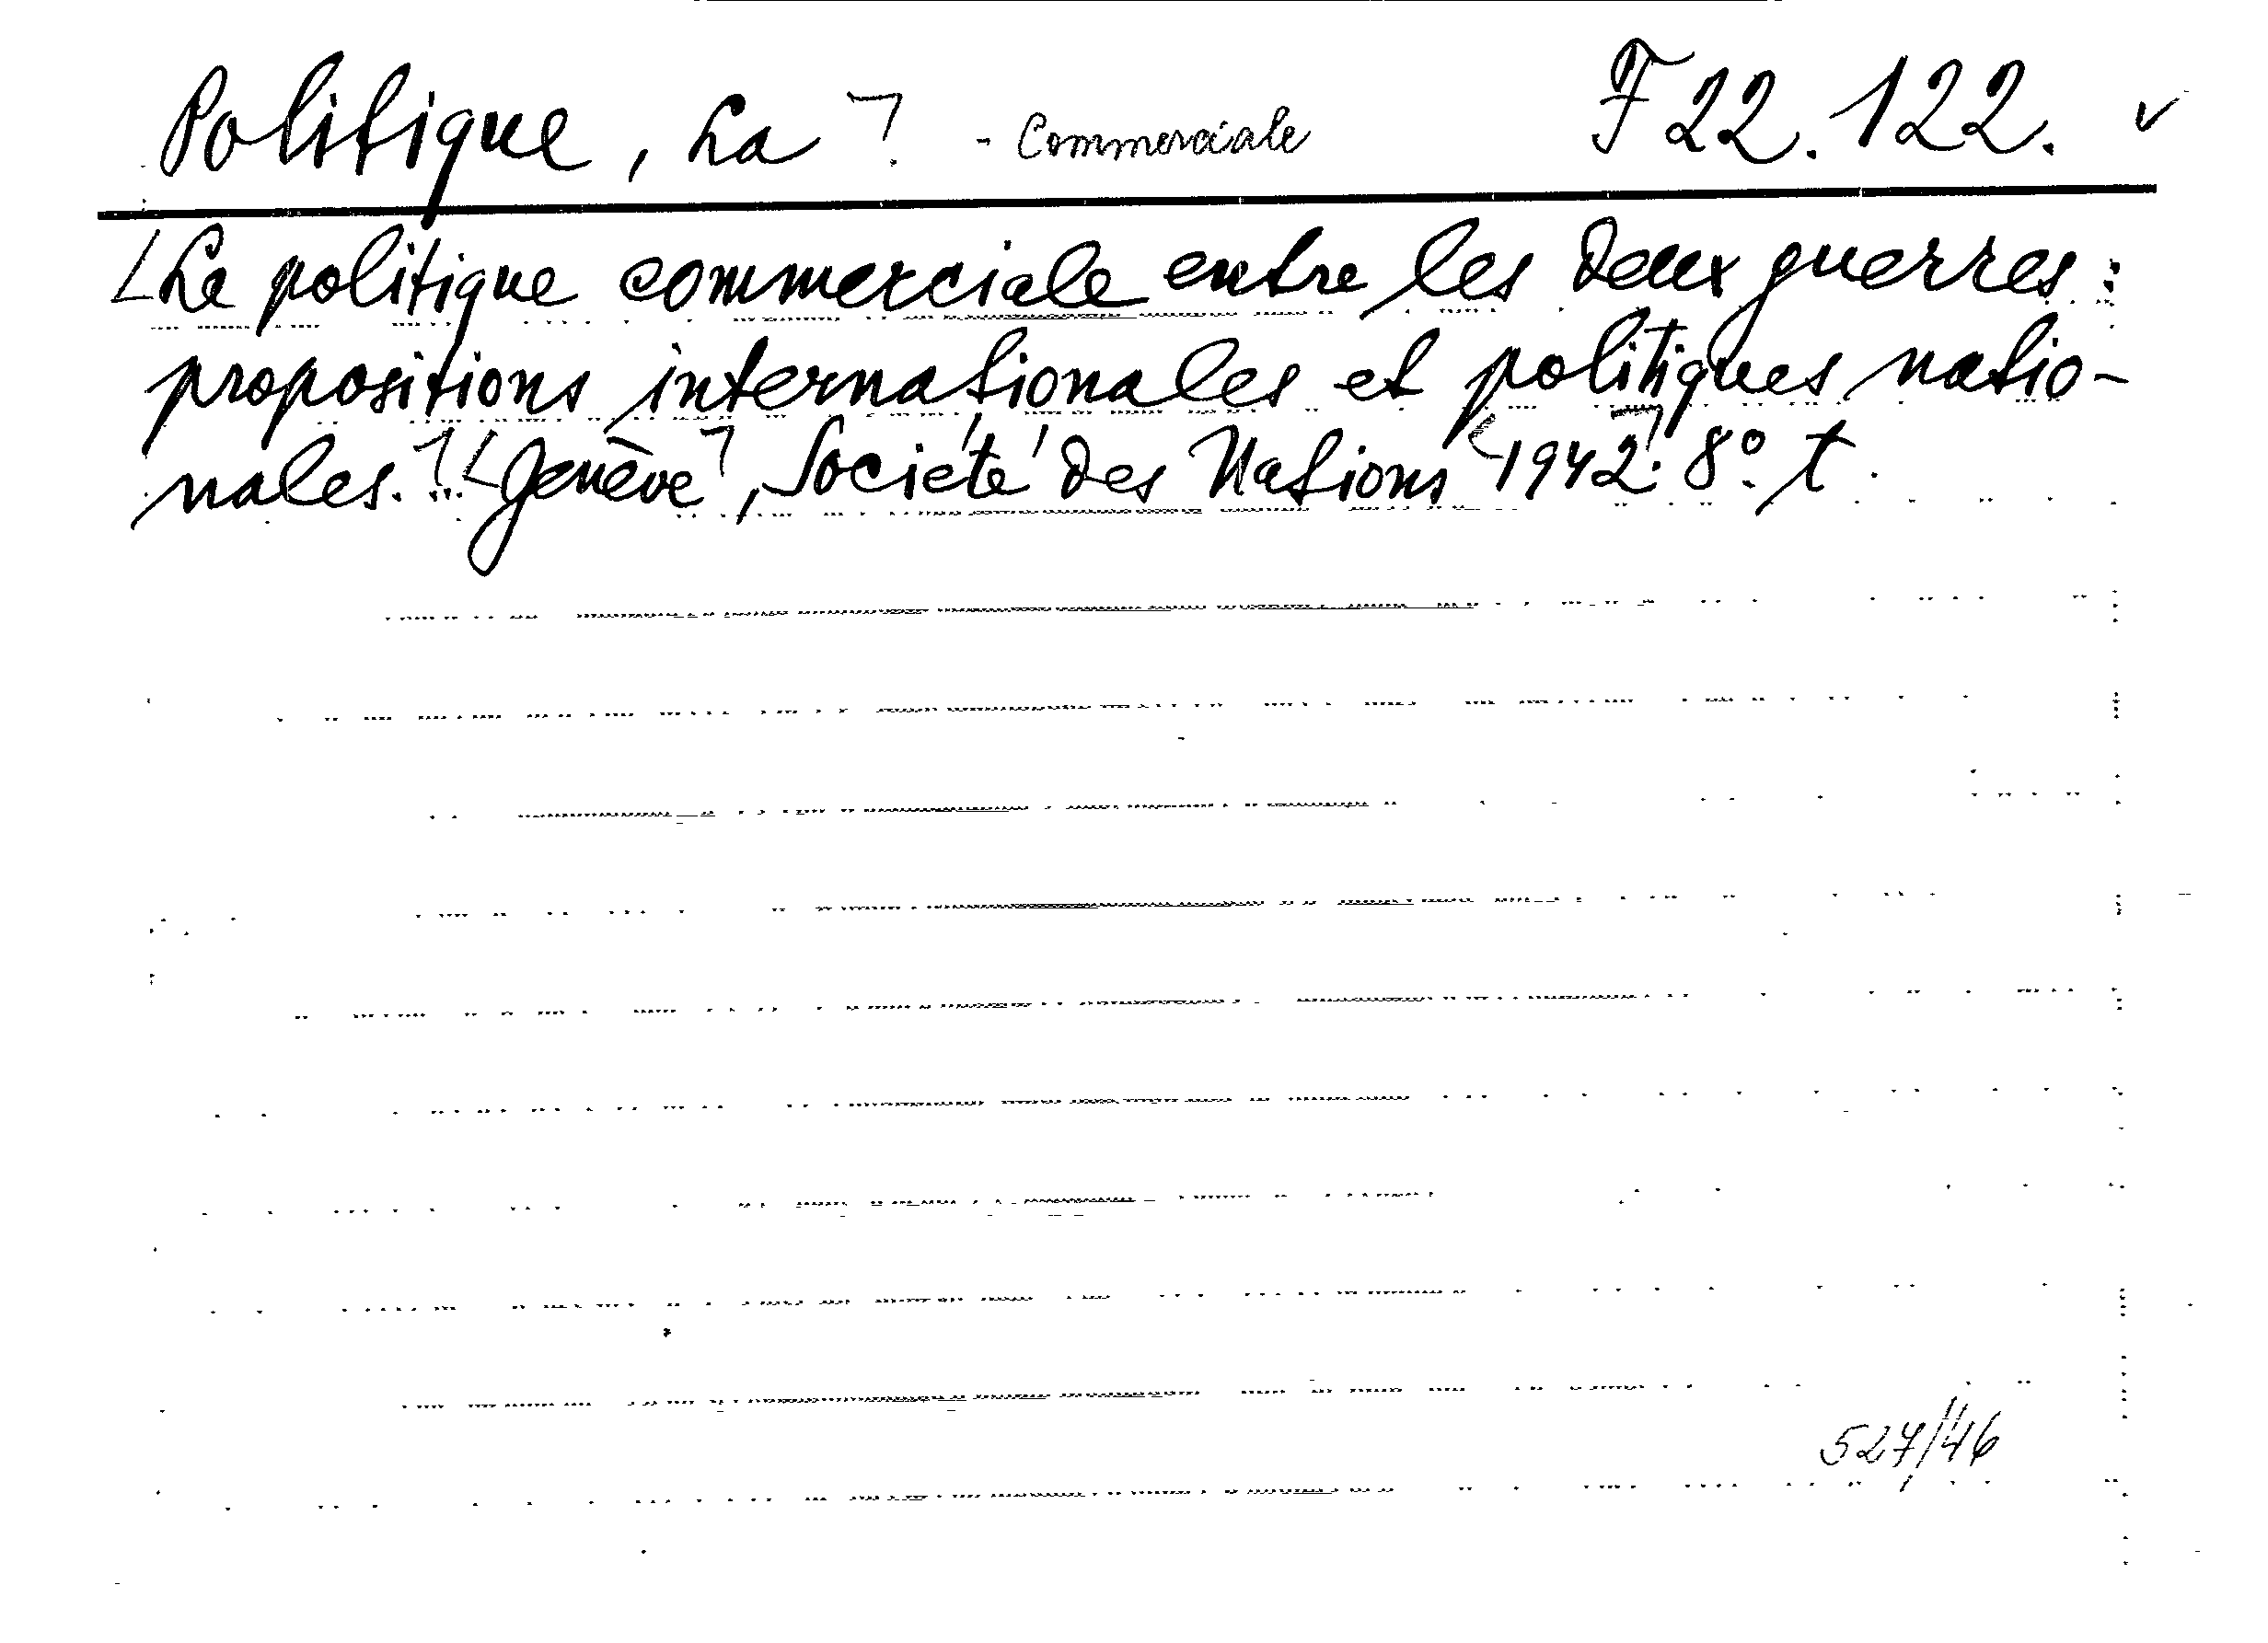 Politique, La - Commerciale F 22.122. v
La politique commerciale entre les deux guerres :
propositions internationales et politiques natio-
nales. Genève, Société des Nations 1942. 8° t.
527/46